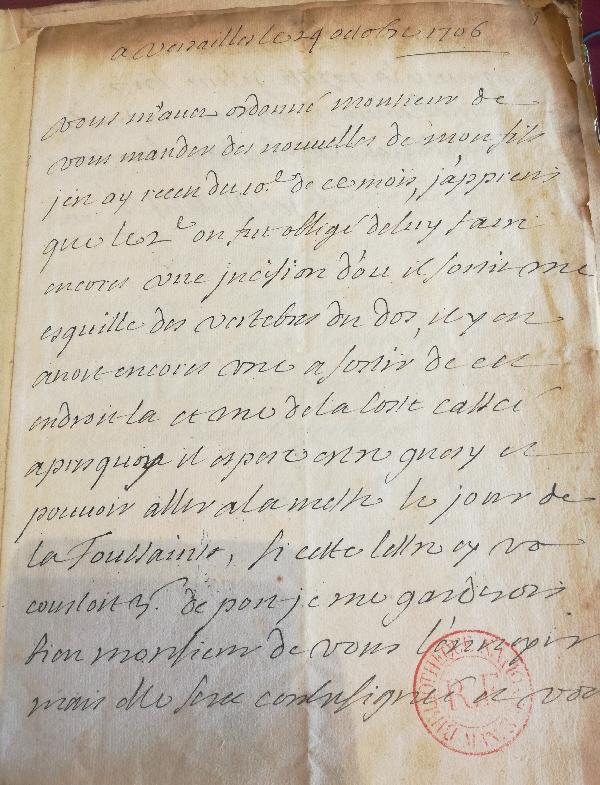 a Versailles le 29 octobre 1706
vous m'avez ordonné monsieur de
vous mander des nouvelles de mon fils
j'en ay receu du 10.e de ce mois, j'apprens
que le 2e on fut obligé de luy faire
encores une jncision d'ou il sortit une
esquille des vertebres du dos, il y en
avoit encores une a sortir de cet
endroit la et une de la coste cassée
apresquoy il espere estre guery et
pouvoir aller a la messe le jour de
la Toussaints, si cette lettre cy vo
coustoit de port je me garderois
bien monsieur de vous l'envoyer
mais elle sera contresignée et vo
BIBLIOTHEQUE
R.F
MANUS